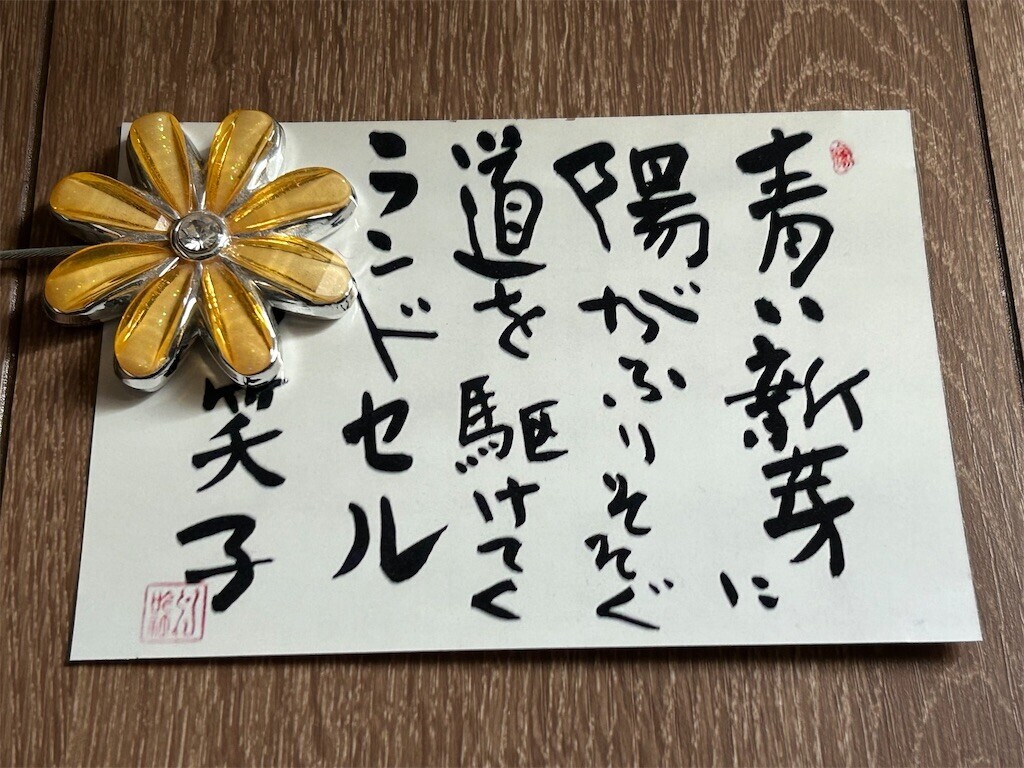 青い新芽に
陽がふりそそぐ
道を駆けてく
ランドセル
笑子